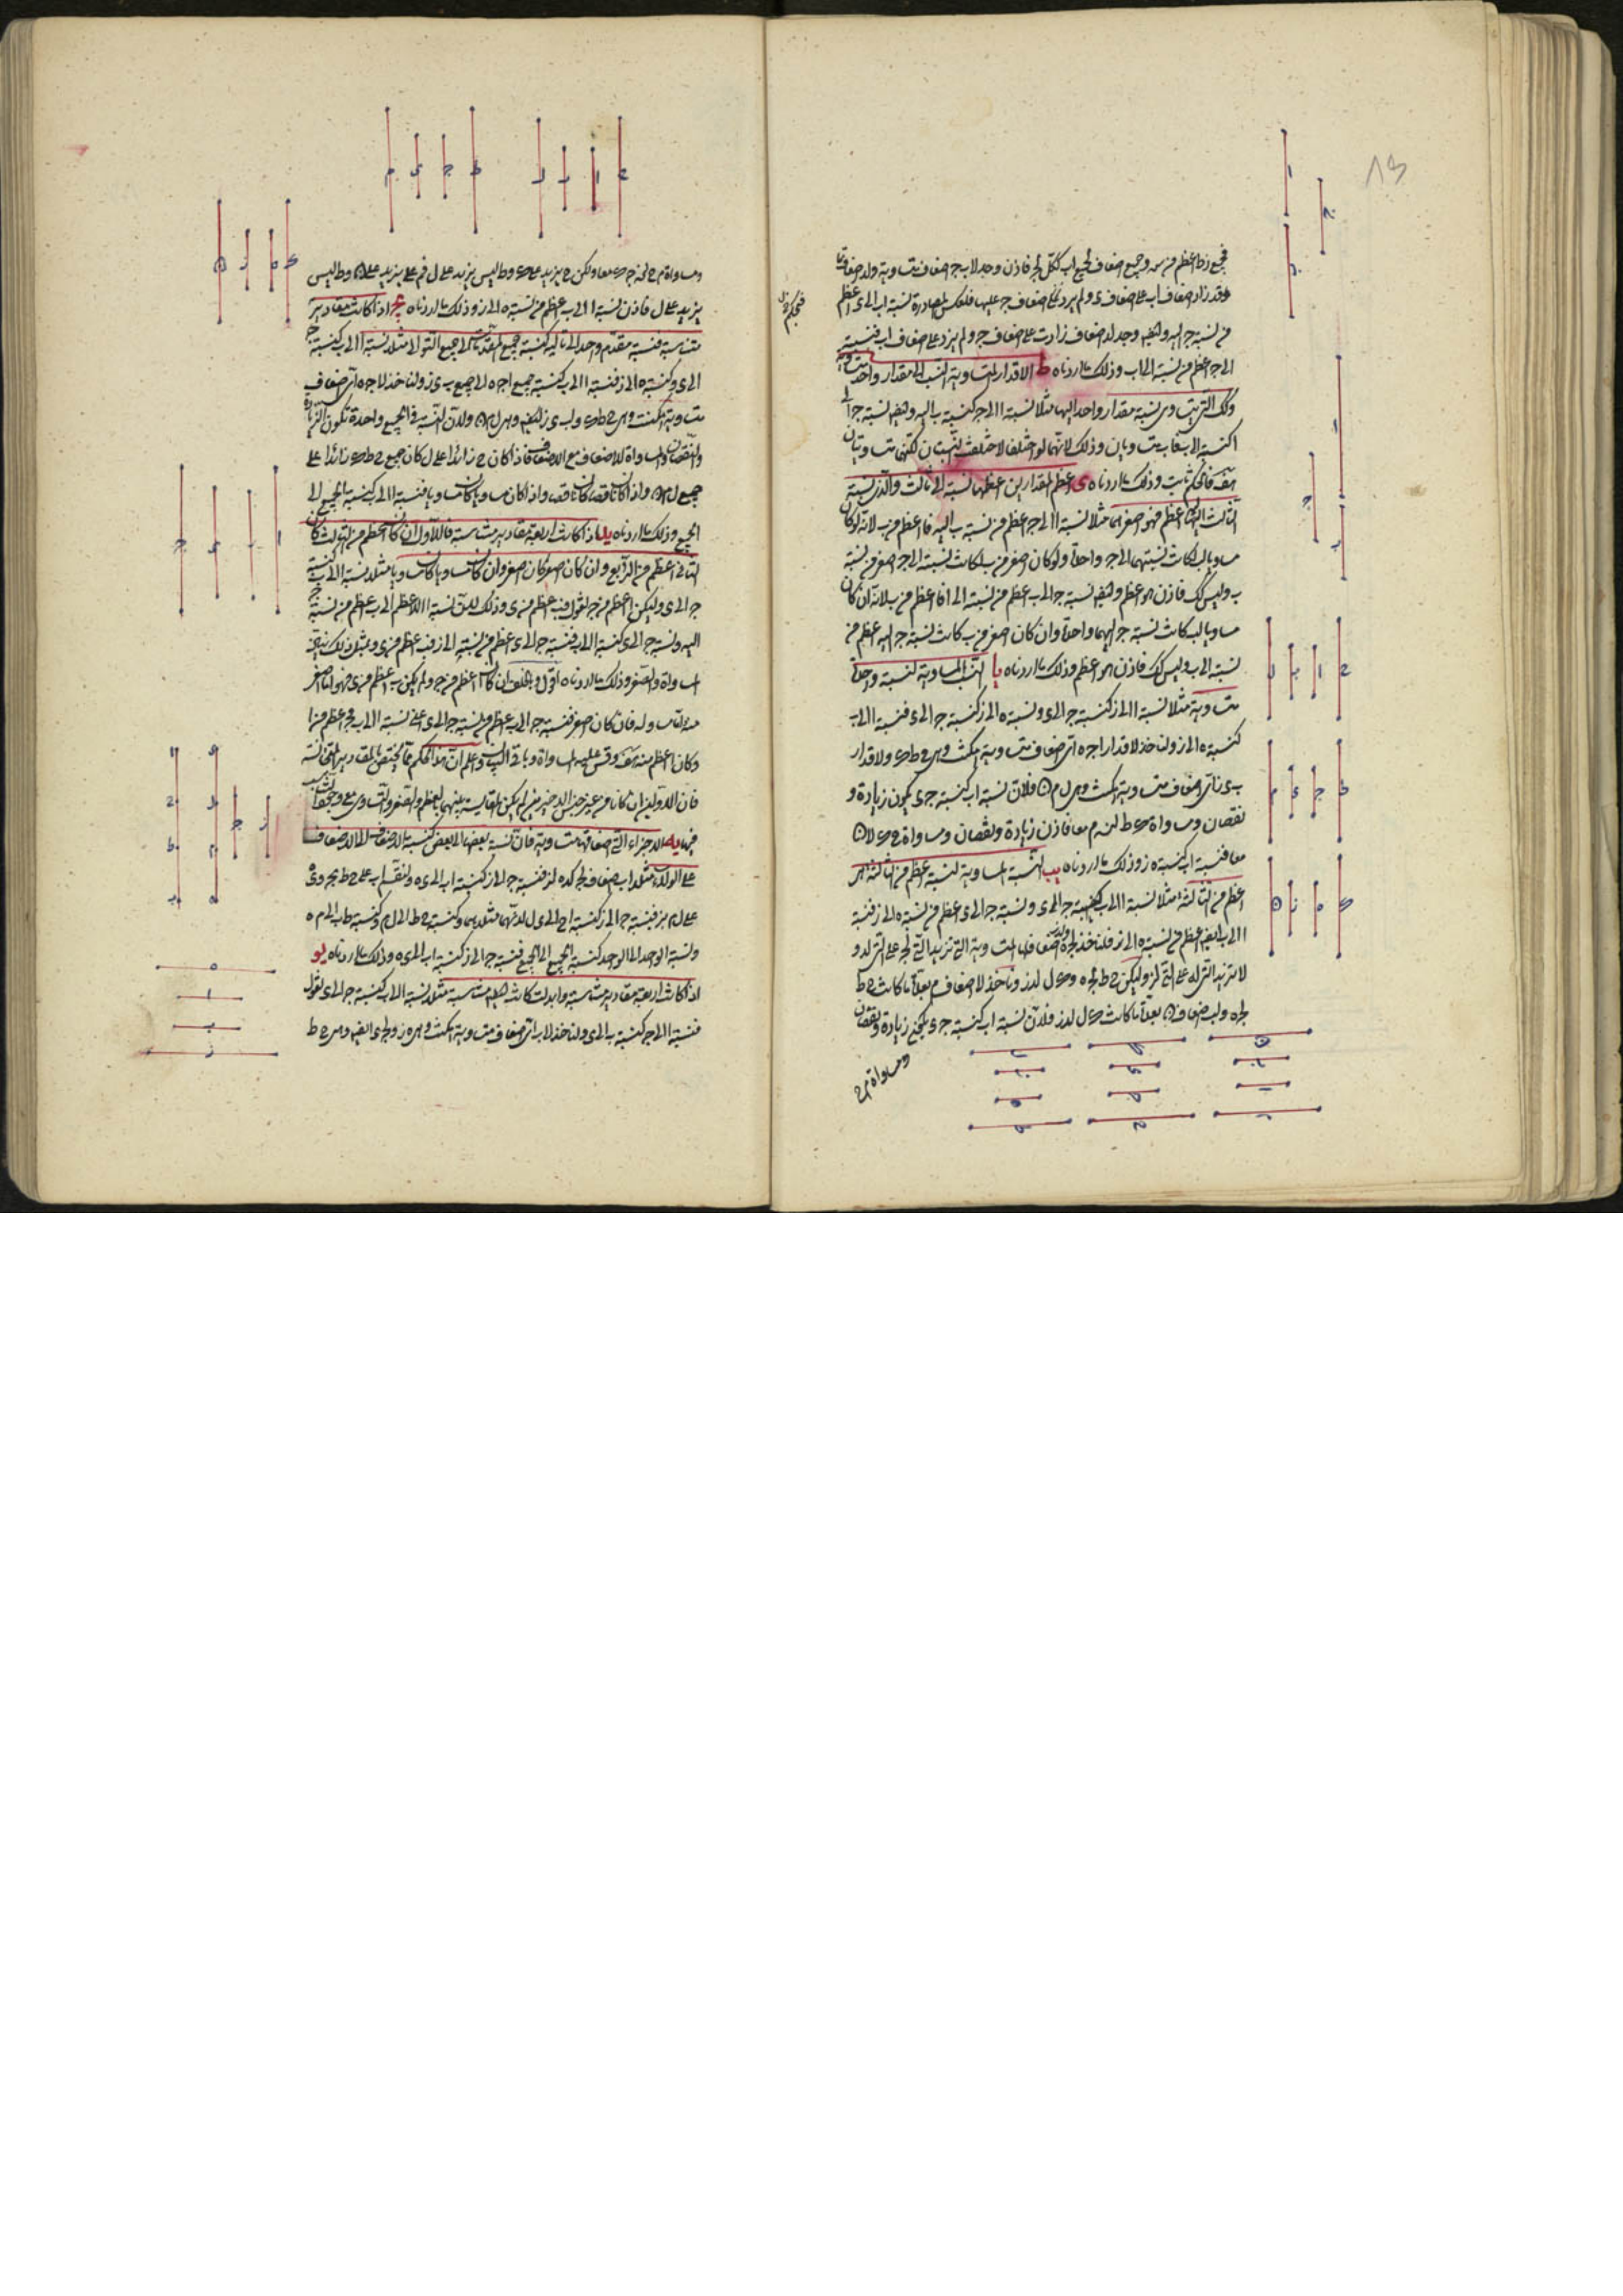 فجميع زط اعظم من سه وجميع اضعاف لجميع اب ككل لجـ فاذن وجد لاب جـ اضعاف متساوية ولد اضعاف ما
وقد زاد اضعاف اب على اضعاف ى ولم يزد اضعاف جـ عليها فلعكس المصادرة نسبة اب الى ى اعظم
من نسبة جـ اليه وايضا وجد لد اضعاف زادت على اضعاف جـ ولم يزد على اضعاف اب فنسبته
الى جـ اعظم من نسبته الى اب وذلك ما اردناه ط الاقدار المتساوية النسب الى مقدار واحد متساوية
وكك التى يتساوى نسبة مقدار واحد اليها مثلا نسبة ا الى جـ كنسبة ب اليه وايضا نسبة جـ الى
ا كنسبته الى ب فاب متساويان وذلك لانهما لو اختلفا لاختلفت النسبتان لكنهما متساويتان
هف فالحكم ثابت وذلك ما اردناه ى اعظم المقدارين اعظمهما نسبة الى ثالث والذى نسبة
الثالث اليه اعظم فهو اصغرهما مثلا نسبة ا الى جـ اعظم من نسبة ب اليه فا اعظم من ب لانه لو كان
مساويا لب كانت نسبتهما الى جـ واحدة ولو كان اصغر من ب لكانت نسبته الى جـ اصغر من نسبة
ب وليس كك فاذن هو اعظم وايضا نسبة جـ الى ب اعظم من نسبته الى ا فا اعظم من ب لانه ان كان
مساويا لب كانت نسبة جـ اليهما واحدة وان كان اصغر من ب كانت نسبة جـ اليه اعظم من
نسبته الى ب وليس كك فاذن هو اعظم وذلك ما اردناه يا النسب المساوية لنسبة واحدة
متساوية مثلا نسبة ا الى ب كنسبة جـ الى ى ونسبة ه الى ز كنسبة جـ الى ى فنسبة ا الى ب
كنسبة ه الى ز ولناخذ لاقدار ا جـ ه اى اضعاف متساوية امكنت وهى ح ط ك ولاقدار
ب ى ز اى اضعاف متساوية امكنت وهى ل م ن فلان نسبة اب كنسبة جـ ى يكون زيادة و
نقصان ومساواة ح ط لـ ل م معا فاذن زيادة ونقصان ومساواة ح ك لـ ل ن
معا فنسبة اب كنسبة ه ز وذلك ما اردناه يب النسبة المساوية لنسبة اعظم من ثالثة هى
اعظم من الثالثة مثلا نسبة ا الى ب كنسبة جـ الى ى ونسبة جـ الى ى اعظم من نسبة ه الى ز فنسبة
ا الى ب ايضا اعظم من نسبة ه الى ز فلناخذ لجـ ه ولد ز اضعافا متساوية التى تزيد التى لجـ على التى لد و
لا تزيد التى له على التى لز وليكن ح ط لجـ ه وك ل لد ز وناخذ لا اضعاف م بعدة ما كانت ح ط
لجـ ه ولب اضعاف ن بعدة ما كانت ك ل لد ز فلان نسبة اب كنسبة جـ ى يكون زيادة ونقصان
ومساواة م ح
ومساواة م ح لـ ن ك معا ولكن ح يزيد على ك وط ليس يزيد على ل فم على يزيد على ن وط ليس
يزيد على ل فاذن نسبة ا الى ب اعظم من نسبة ه الى ز وذلك ما اردناه يج اذا كانت مقادير
متناسبة فنسبة مقدم واحد الى تاليه كنسبة جميع المقدمات الى جميع التوالى مثلا نسبة ا الى ب كنسبة جـ
الى ى وكنسبة ه الى ز فنسبة ا الى ب كنسبة جميع ا جـ ه الى جميع ب ى ز ولناخذ لا جـ ه اى اضعاف
متساوية امكنت وهى ح ط ك ولب ى ز ايضا وهى ل م ن ولان النسب فى الجميع واحدة تكون الزيادة
والنقصان والمساواة للاضعاف مع الاضعاف فاذا كان ح زائدا على ل كان جميع ح ط ك زائدا على
جميع ل م ن واذا كان ناقصا كان ناقصا واذا كان مساويا كان مساويا فنسبة ا الى ب كنسبة الجميع الى
الجميع وذلك ما اردناه يد اذا كانت اربعة مقادير متناسبة فالاول ان كان اعظم من الثالث كان
الثانى اعظم من الرابع وان كان اصغر كان اصغر وان كان مساويا كان مساويا مثلا نسبة ا الى ب كنسبة
جـ الى ى وليكن ا اعظم من جـ نقول فب اعظم من ى وذلك لان نسبة ا الاعظم الى ب اعظم من نسبة جـ
اليه ونسبة جـ الى ى كنسبة ا الى ب فنسبة جـ الى ى اعظم من نسبته الى ب فب اعظم من ى وبمثل ذلك نبين
المساواة والصغر وذلك ما اردناه
وكان اعظم منه هف وقس عليه المساواة وباقى البيان واعلم ان هذا الحكم مما يختص بالمقادير المتجانسة
فان الاولين ان كانا من غير جنس الاخيرين لم يكن المقايسة بينهما بالعظم والصغر والتساوى
فيها يه الاجزاء التى اضعافها متساوية فان نسبة بعضها الى بعض كنسبة الاضعاف الى الاضعاف
على الولاء مثلا اب اضعاف لجـ كده لز فنسبة جـ الى ز كنسبة اب الى ى ه ولنقسم اب على ح ط بجـ و ى ه
على ل م بز فنسبة جـ الى ز كنسبة ا ح الى ى ل لانهما مثلاهما وكنسبة ح ط الى ل م وكنسبة ط ب الى م ه
ونسبة الواحد الى الواحد كنسبة الجميع الى الجميع فنسبة جـ الى ز كنسبة اب الى ى ه وذلك ما اردناه يو
اذا كانت اربعة مقادير متناسبة وابدلت كانت ايضا متناسبة مثلا نسبة ا الى ب كنسبة جـ الى ى نقول
فنسبة ا الى جـ كنسبة ب الى ى ولناخذ لا ب اى اضعاف متساوية امكنت وهى ه ز ولجـ ى ايضا وهى ح ط